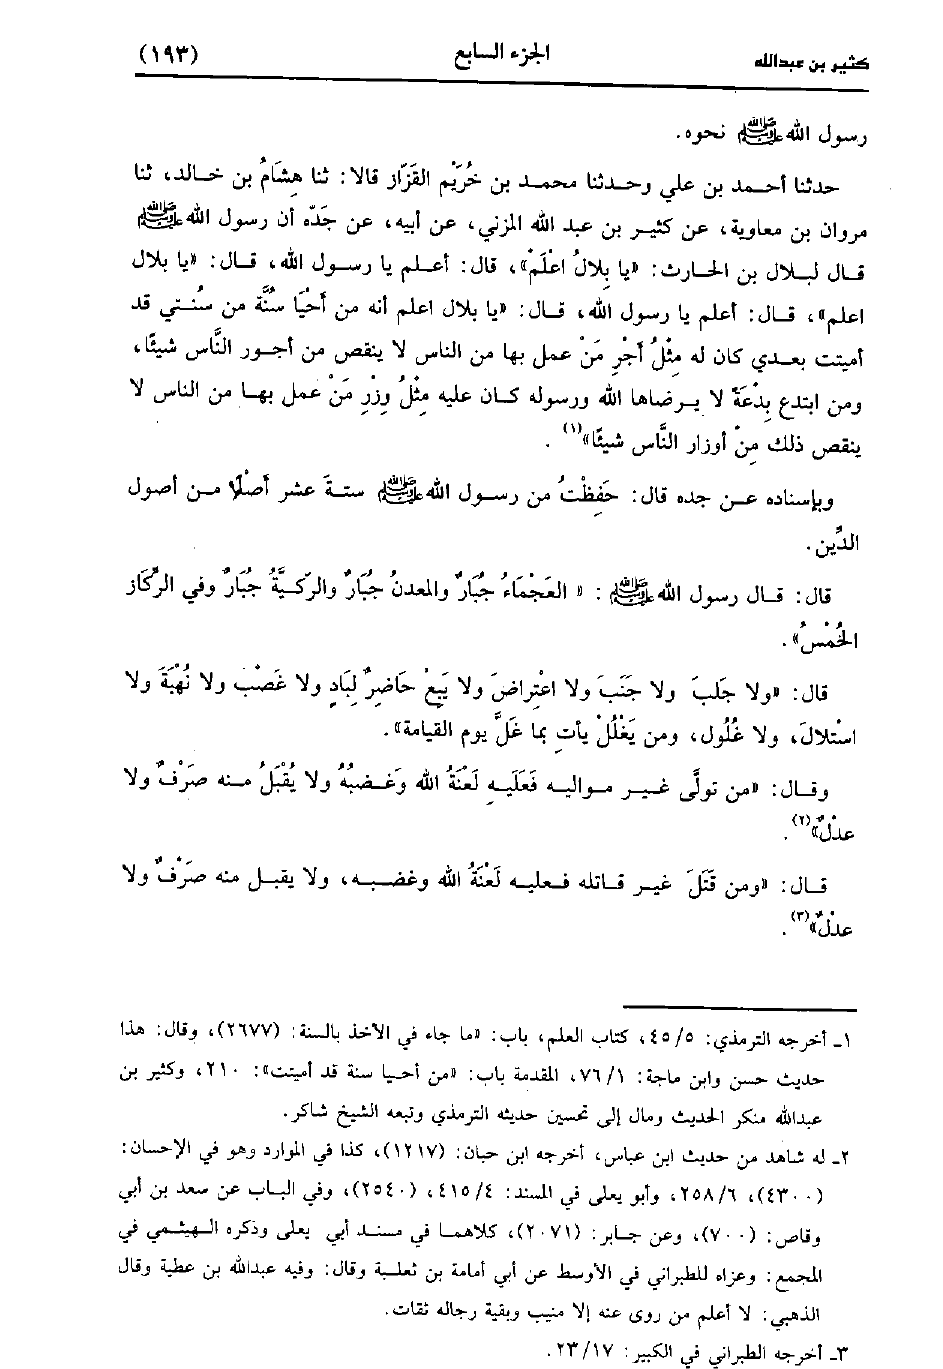 كثير بن عبدالله
الجزء السابع
(١٩٣)
رسول الله ﷺ نحوه.
حدثنا أحمد بن علي وحدثنا محمد بن خُرَيْم القزّاز قالا: ثنا هِشَامُ بن خالد، ثنا
مروان بن معاوية، عن كثير بن عبد الله المزني، عن أبيه، عن جَدّه أن رسول الله ﷺ
قال لبلال بن الحارث: «يا بِلالُ اعْلَم»، قال: أعلم يا رسول الله، قال: «يا بلال
اعلم»، قال: أعلم يا رسول الله، قال: «يا بلال اعلم أنه من أحْيَا سُنَّة من سُنتي قد
أميتت بعدي كان له مِثْلُ أجْرِ مَنْ عمل بها من الناس لا ينقص من أجور النَّاس شيئًا،
ومن ابتدع بِدْعَةً لا يرضاها الله ورسوله كان عليه مِثْلُ وِزْرِ مَنْ عمل بها من الناس لا
ينقص ذلك مِنْ أوزار النَّاس شيئًا»(١).
وبإسناده عن جده قال: حَفِظْتُ من رسول الله ﷺ ستةَ عشر أصْلًا من أصول
الدِّين.
قال: قال رسول الله ﷺ: «العَجْمَاءُ جُبَارٌ والمعدنُ جُبَارٌ والركيَّةُ جُبَارٌ وفي الركَاز
الخُمْسُ».
قال: «ولا جَلبَ ولا جَنَبَ ولا اعْتِراضَ ولا يَبِعْ حَاضِرٌ لِبَادٍ ولا غَصْبَ ولا نُهْبَةَ ولا
اسْتلالَ، ولا غُلُول، ومن يَغْلُلْ يأتِ بما غَلَّ يوم القيامة».
وقال: «من تولَّى غير مواليه فَعَلَيهِ لَعْنَةُ الله وَغَضبُهُ ولا يُقْبَلُ منه صَرْفٌ ولا
عدْلٌ»(٢).
قال: «ومن قَتَلَ غير قاتله فعليه لَعْنَةُ الله وغضبه، ولا يقبل منه صَرْفٌ ولا
عدْلٌ»(٣).
١ـ أخرجه الترمذي: ٤٥/٥، كتاب العلم، باب: «ما جاء في الأخذ بالسنة: (٢٦٧٧)، وقال: هذا
حديث حسن وابن ماجة: ٧٦/١، المقدمة باب: «من أحيا سنة قد أميتت»: ٢١٠، وكثير بن
عبدالله منكر الحديث ومال إلى تحسين حديثه الترمذي وتبعه الشيخ شاكر.
٢ـ له شاهد من حديث ابن عباس، أخرجه ابن حبان: (١٢١٧)، كذا في الموارد وهو في الإحسان:
(٤٣٠٠)، ٢٥٨/٦، وأبو يعلى في المسند: ٤١٥/٤، (٢٥٤٠)، وفي الباب عن سعد بن أبي
وقاص: (٧٠٠)، وعن جابر: (٢٠٧١)، كلاهما في مسند أبي يعلى وذكره الهيثمي في
المجمع: وعزاه للطبراني في الأوسط عن أبي أمامة بن ثعلبة وقال: وفيه عبدالله بن عطية وقال
الذهبي: لا أعلم من روى عنه إلا منيب وبقية رجاله ثقات.
٣ـ أخرجه الطبراني في الكبير: ٢٣/١٧.